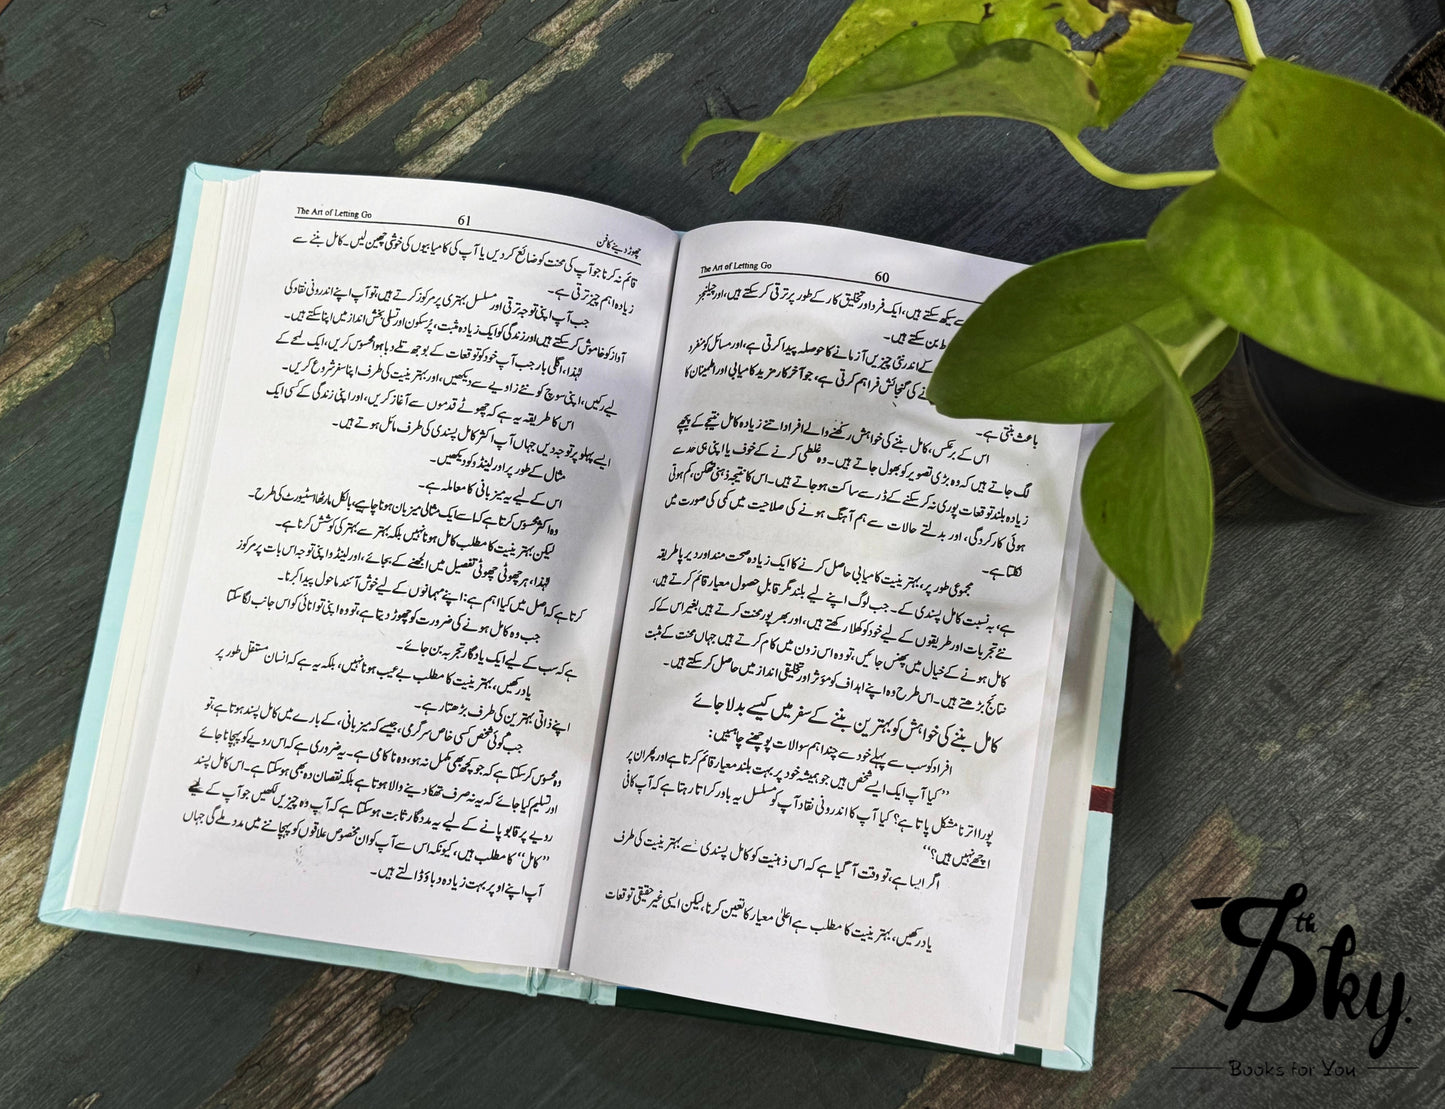 The Art of Letting Go
60
سے سیکھ سکتے ہیں، ایک فرد اور تخلیق کار کے طور پر ترقی کر سکتے ہیں، اور چیلنجز
بن سکتے ہیں۔
کے اندر نئی چیزیں آزمانے کا حوصلہ پیدا کرتی ہے، اور مسائل کو منفرد
کی گنجائش فراہم کرتی ہے، جو آخر کار مزید کامیابی اور اطمینان کا
باعث بنتی ہے۔
اس کے برعکس، کامل بننے کی خواہش رکھنے والے افراد اتنے زیادہ کامل نتیجے کے پیچھے
لگ جاتے ہیں کہ وہ بڑی تصویر کو بھول جاتے ہیں۔ وہ غلطی کرنے کے خوف یا اپنی ہی حد سے
زیادہ بلند توقعات پوری نہ کر سکنے کے ڈر سے ساکت ہو جاتے ہیں۔ اس کا نتیجہ ذہنی تھکن، کم ہوتی
ہوئی کارکردگی، اور بدلتے حالات سے ہم آہنگ ہونے کی صلاحیت میں کمی کی صورت میں
نکلتا ہے۔
مجموعی طور پر، بہترینیت کامیابی حاصل کرنے کا ایک زیادہ صحت مند اور دیرپا طریقہ
ہے، بہ نسبت کامل پسندی کے۔ جب لوگ اپنے لیے بلند مگر قابلِ حصول معیار قائم کرتے ہیں،
نئے تجربات اور طریقوں کے لیے خود کو کھلا رکھتے ہیں، اور بھرپور محنت کرتے ہیں بغیر اس کے کہ
کامل ہونے کے خیال میں پھنس جائیں، تو وہ اس زون میں کام کرتے ہیں جہاں محنت کے مثبت
نتائج بڑھتے ہیں۔ اس طرح وہ اپنے اہداف کو مؤثر اور تخلیقی انداز میں حاصل کر سکتے ہیں۔
کامل بننے کی خواہش کو بہترین بننے کے سفر میں کیسے بدلا جائے
افراد کو سب سے پہلے خود سے چند اہم سوالات پوچھنے چاہئیں:
”کیا آپ ایک ایسے شخص ہیں جو ہمیشہ خود پر بہت بلند معیار قائم کرتا ہے اور پھر ان پر
پورا اترنا مشکل پاتا ہے؟ کیا آپ کا اندرونی نقاد آپ کو مسلسل یہ باور کراتا رہتا ہے کہ آپ کافی
اچھے نہیں ہیں؟“
اگر ایسا ہے، تو وقت آ گیا ہے کہ اس ذہنیت کو کامل پسندی سے بہترینیت کی طرف
یاد رکھیں، بہترینیت کا مطلب ہے اعلیٰ معیار کا تعین کرنا، لیکن ایسی غیر حقیقی توقعات
The Art of Letting Go
61
چھوڑ دینے کا فن
قائم نہ کرنا جو آپ کی محنت کو ضائع کر دیں یا آپ کی کامیابیوں کی خوشی چھین لیں۔ کامل بننے سے
زیادہ اہم چیز ترقی ہے۔
جب آپ اپنی توجہ ترقی اور مسلسل بہتری پر مرکوز کرتے ہیں، تو آپ اپنے اندرونی نقاد کی
آواز کو خاموش کر سکتے ہیں اور زندگی کو ایک زیادہ مثبت، پُرسکون اور تسلی بخش انداز میں اپنا سکتے ہیں۔
لہٰذا، اگلی بار جب آپ خود کو توقعات کے بوجھ تلے دبا ہوا محسوس کریں، ایک لمحے کے
لیے رکیں، اپنی سوچ کو نئے زاویے سے دیکھیں، اور بہترینیت کی طرف اپنا سفر شروع کریں۔
اس کا طریقہ یہ ہے کہ چھوٹے قدموں سے آغاز کریں، اور اپنی زندگی کے کسی ایک
ایسے پہلو پر توجہ دیں جہاں آپ اکثر کامل پسندی کی طرف مائل ہوتے ہیں۔
مثال کے طور پر اور لینڈو کو دیکھیں۔
اس کے لیے یہ میزبانی کا معاملہ ہے۔
وہ اکثر محسوس کرتا ہے کہ اسے ایک مثالی میزبان ہونا چاہیے، بالکل مارتھا اسٹیورٹ کی طرح۔
لیکن بہترینیت کا مطلب کامل ہونا نہیں بلکہ بہتر سے بہتر کی کوشش کرنا ہے۔
لہٰذا، ہر چھوٹی چھوٹی تفصیل میں الجھنے کے بجائے، اور لینڈو اپنی توجہ اس بات پر مرکوز
کرتا ہے کہ اصل میں کیا اہم ہے: اپنے مہمانوں کے لیے خوش آئند ماحول پیدا کرنا۔
جب وہ کامل ہونے کی ضرورت کو چھوڑ دیتا ہے، تو وہ اپنی توانائی کو اس جانب لگا سکتا
ہے کہ سب کے لیے ایک یادگار تجربہ بن جائے۔
یاد رکھیں، بہترینیت کا مطلب بے عیب ہونا نہیں، بلکہ یہ ہے کہ انسان مستقل طور پر
اپنے ذاتی بہترین کی طرف بڑھتا رہے۔
جب کوئی شخص کسی خاص سرگرمی، جیسے کہ میزبانی، کے بارے میں کامل پسند ہوتا ہے، تو
وہ محسوس کر سکتا ہے کہ جو کچھ بھی مکمل نہ ہو، وہ ناکامی ہے۔ یہ ضروری ہے کہ اس رویے کو پہچانا جائے
اور تسلیم کیا جائے کہ یہ نہ صرف تھکا دینے والا ہوتا ہے بلکہ نقصان دہ بھی ہو سکتا ہے۔ اس کامل پسند
رویے پر قابو پانے کے لیے یہ مددگار ثابت ہو سکتا ہے کہ آپ وہ چیزیں لکھیں جو آپ کے لیے
”کامل“ کا مطلب ہیں، کیونکہ اس سے آپ کو ان مخصوص علاقوں کو پہچاننے میں مدد ملے گی جہاں
آپ اپنے اوپر بہت زیادہ دباؤ ڈالتے ہیں۔
Sth Sky.
Books for You